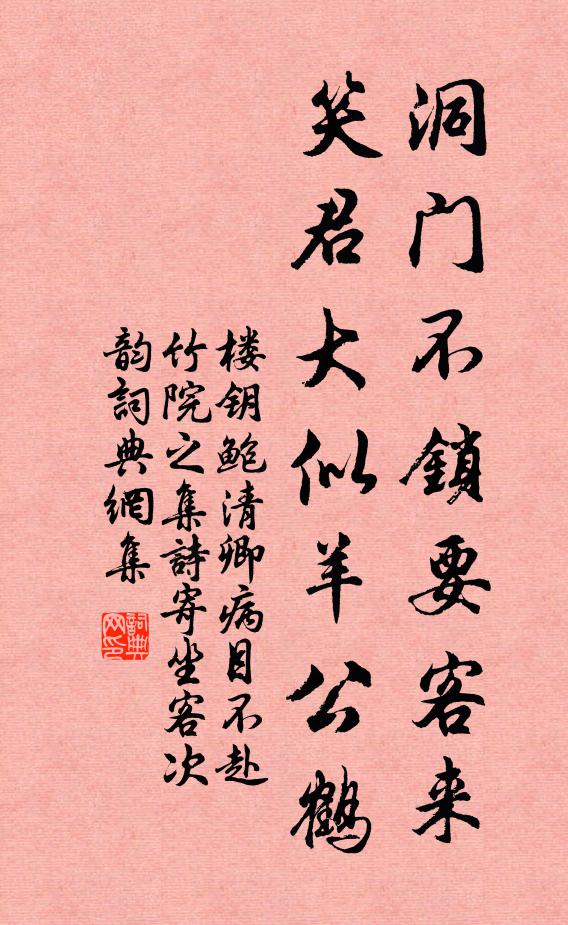 洞门不鎖要客来
笑君大似羊公鶴
楼钥鲍清卿病目不赴
竹院之集詩寄坐客次
韵詞典網集
詞典
网印